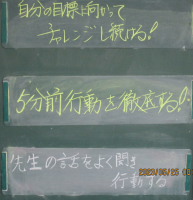 自分の目標に向かって
チャレンジし続ける!
5分前行動を徹底する!
先生の言話をよく聞き
行動する